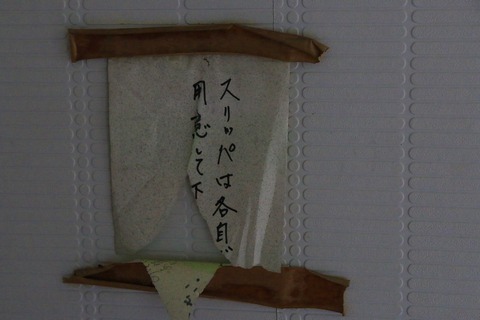 スリッパは各自
用意して下